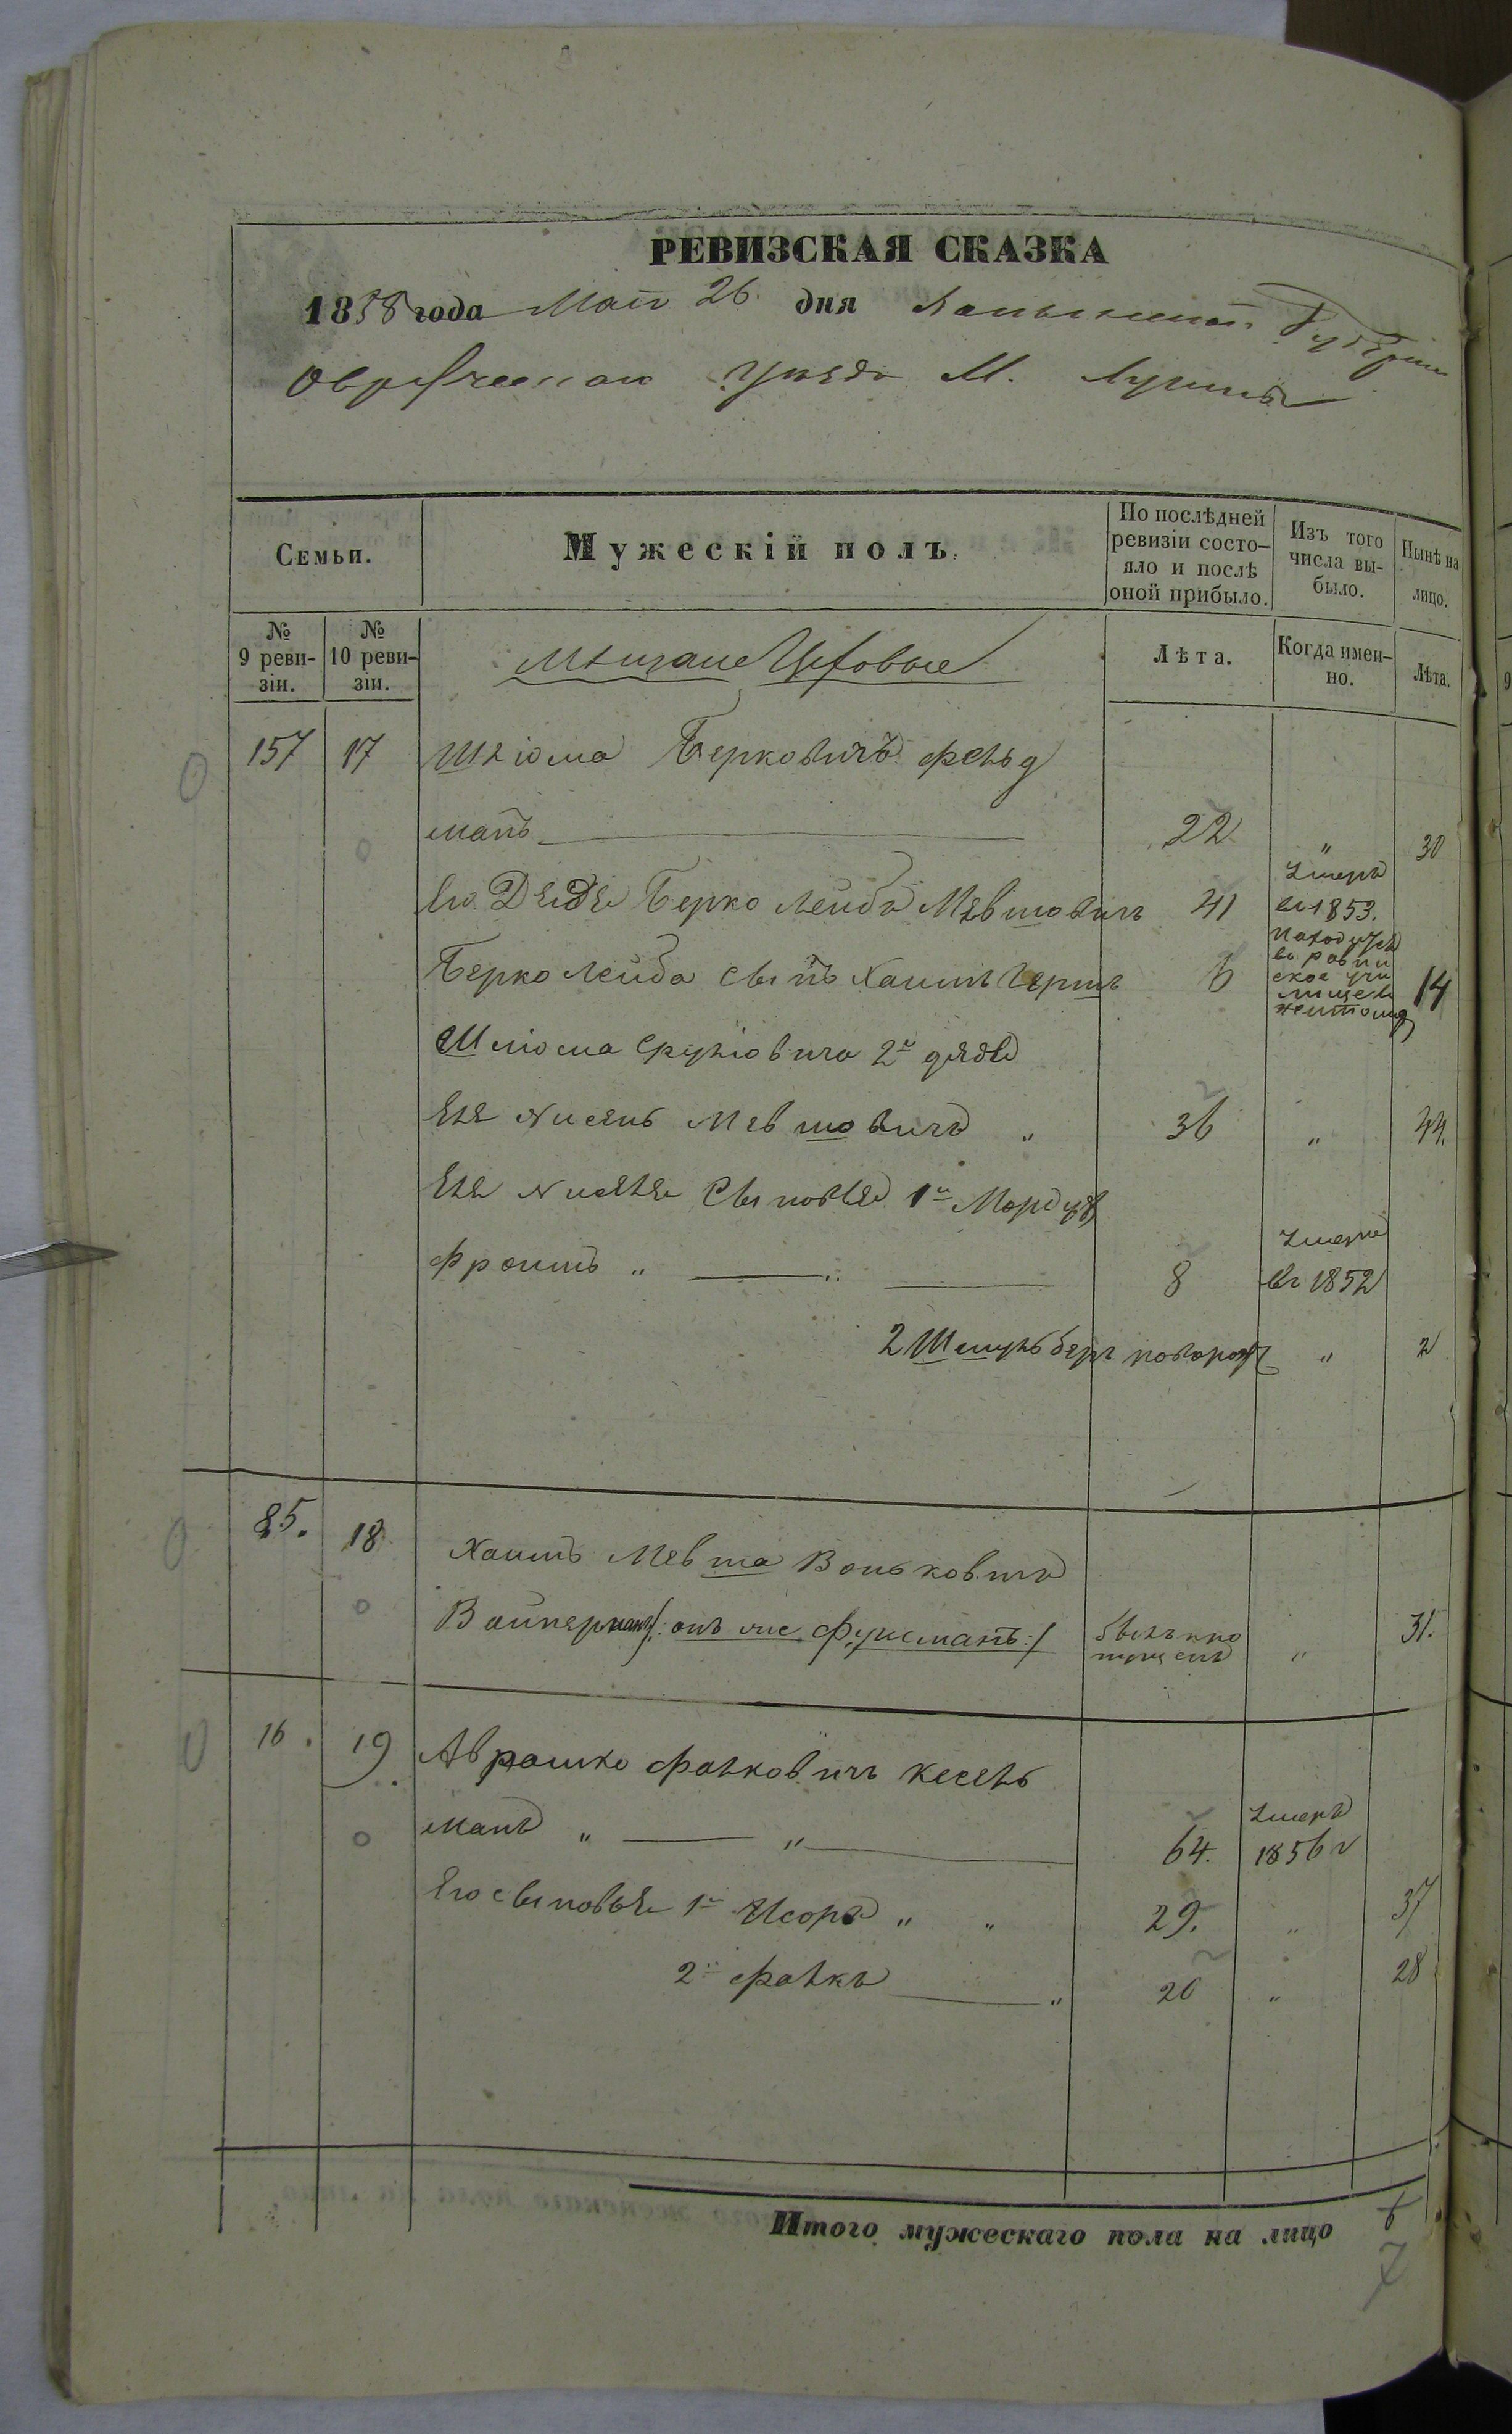 РЕВИЗСКАЯ СКАЗКА
1858 года Мая 26. дня Волынской Губерніи
Овручскаго Уѣзда М. Лугинъ
Семьи.
Мужескій полъ.
По послѣдней ревизіи состо-
яло и послѣ
оной прибыло.
Изъ того
числа вы-
было.
Нынѣ на
лицо.
№
9 реви-
зіи.
№
10 реви-
зіи.
Мѣщане Цеховые
Лѣта.
Когда имен-
но.
Лѣта.
157 17 Шліома Берковичъ Фельд
манъ 22 " 30
Его Дядя Берко Лейба Мевшовичъ 41 Умеръ в 1853.
Берко Лейба Сынъ Хаимъ Гершъ 6 Находится въ равин ское учи лище въ Житомир 14
Шліома Сруліовича 2й дядя
Еля Нисень Мевшовичъ " 36 " 44.
Еля Ниселя Сыновья 1й Мордух
Фроимъ " " 8 Умеръ въ 1852
2 Шмуль Беръ новорож " 2
85. 18 Хаимъ Мевша Вольковичъ
Вайнерманъ /: онъ же Фуксманъ :/ былъ про пущенъ " 31.
16. 19. Аврошко Фалковичъ Кесель
манъ " " 64. Умеръ 1856 г
Его сыновья 1й Исоръ " " 29. " 37
2й Фалкъ " 20 " 28
Итого мужескаго пола на лицо
7